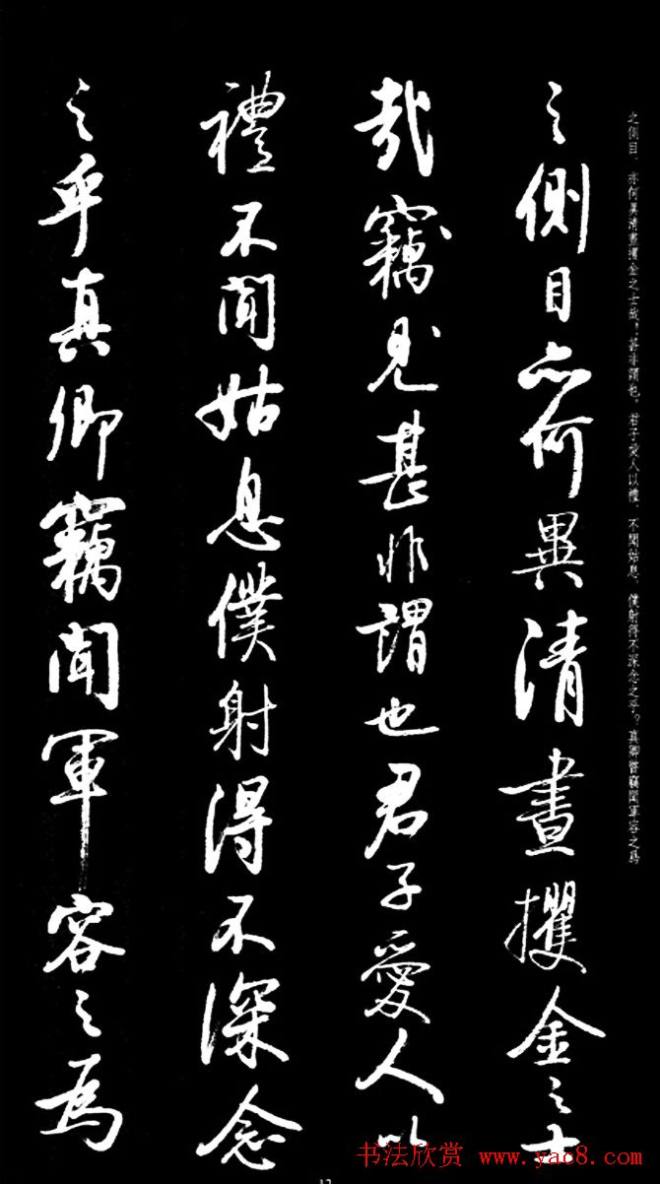 之側目、亦何異清晝攫金之士哉？甚非謂也。君子愛人以禮、不聞姑息、僕射得不深念之乎？真卿竊聞軍容之爲
之側目亦何異清晝攫金之士
哉竊見甚非謂也君子愛人以
禮不聞姑息僕射得不深念
之乎真卿竊聞軍容之為
书法欣赏 www.yac8.com